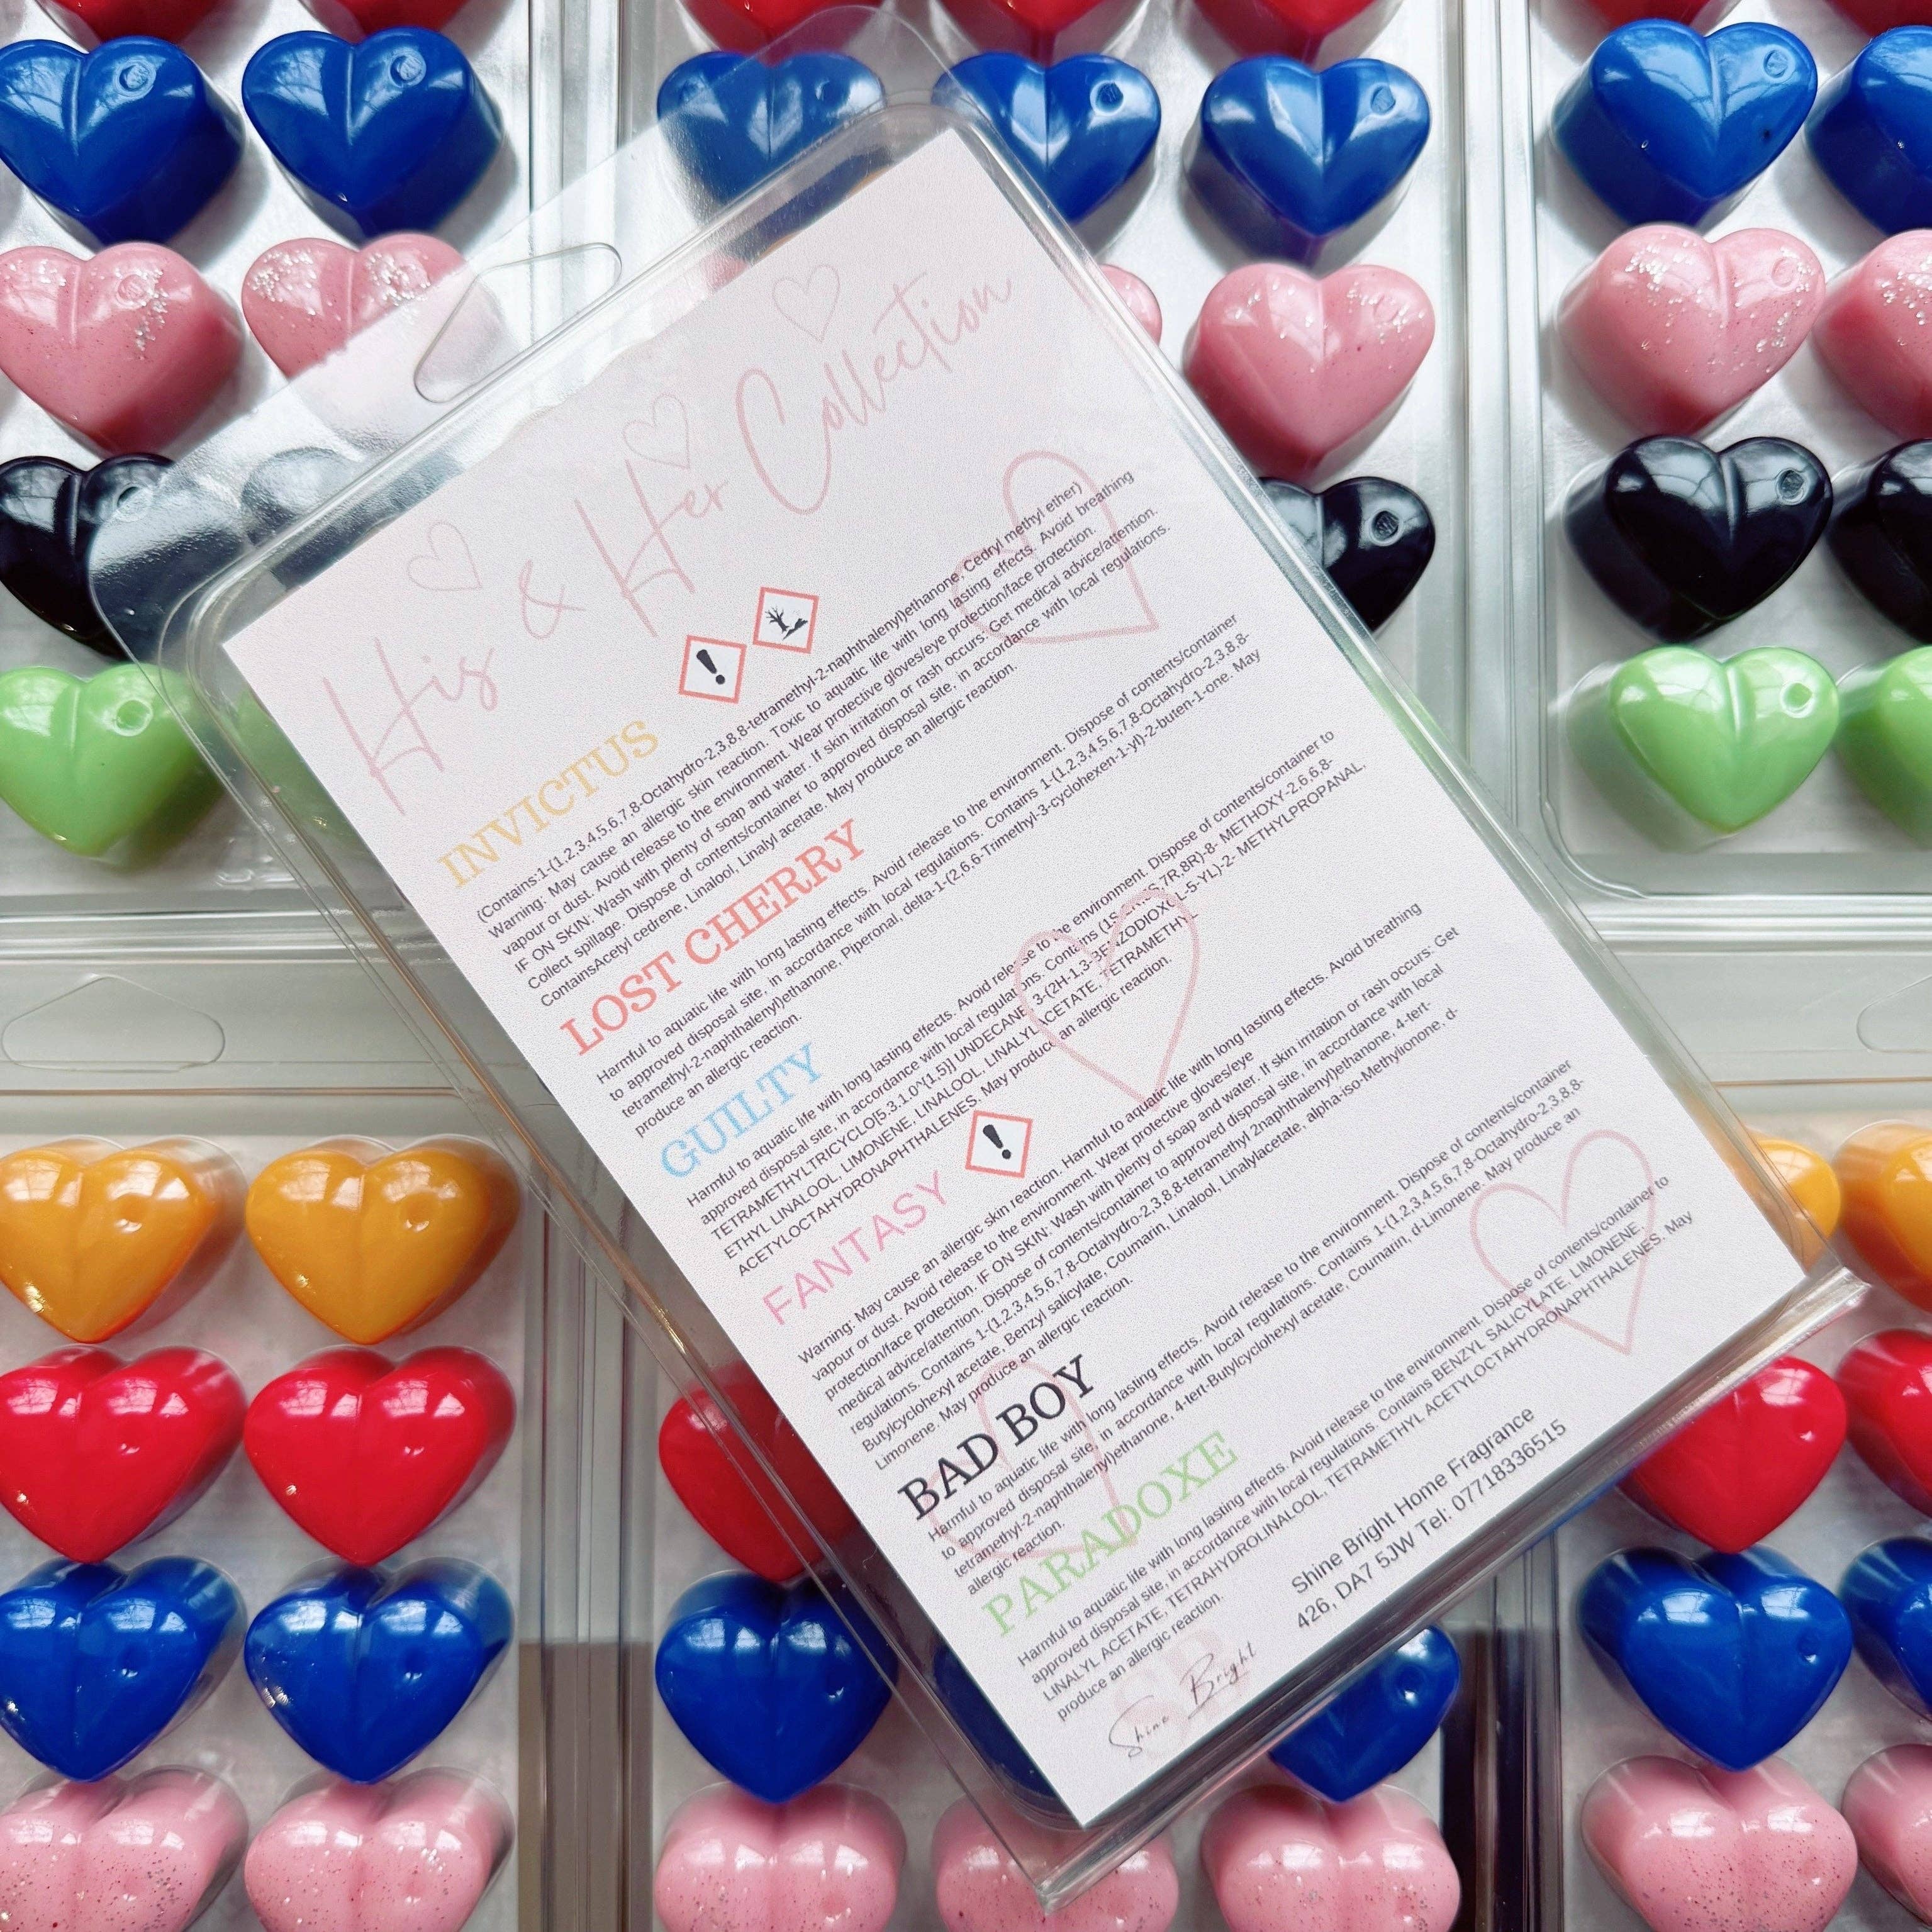 His & Her Collection
INVICTUS
(Contains:1-(1,2,3,4,5,6,7,8-Octahydro-2,3,8,8-tetramethyl-2-naphthalenyl)ethanone, Cedryl methyl ether)
Warning: May cause an allergic skin reaction. Toxic to aquatic life with long lasting effects. Avoid breathing
vapour or dust. Avoid release to the environment. Wear protective gloves/eye protection/face protection.
IF ON SKIN: Wash with plenty of soap and water. If skin irritation or rash occurs: Get medical advice/attention.
Collect spillage. Dispose of contents/container to approved disposal site, in accordance with local regulations.
ContainsAcetyl cedrene, Linalool, Linalyl acetate. May produce an allergic reaction.
LOST CHERRY
Harmful to aquatic life with long lasting effects. Avoid release to the environment. Dispose of contents/container
to approved disposal site, in accordance with local regulations. Contains 1-(1,2,3,4,5,6,7,8-Octahydro-2,3,8,8-
tetramethyl-2-naphthalenyl)ethanone, Piperonal, delta-1-(2,6,6-Trimethyl-3-cyclohexen-1-yl)-2-buten-1-one. May
produce an allergic reaction.
GUILTY
Harmful to aquatic life with long lasting effects. Avoid release to the environment. Dispose of contents/container to
approved disposal site, in accordance with local regulations. Contains (1S, 7R,8R)-8- METHOXY-2,6,6,8-
TETRAMETHYLTRICYCLO[5.3.1.0^{1,5}] UNDECANE, 3-(2H-1,3-BENZODIOXOL-5-YL)-2- METHYLPROPANAL,
ETHYL LINALOOL, LIMONENE, LINALOOL, LINALYL ACETATE, TETRAMETHYL
ACETYLOCTAHYDRONAPHTHALENES. May produce an allergic reaction.
FANTASY
Warning: May cause an allergic skin reaction. Harmful to aquatic life with long lasting effects. Avoid breathing
vapour or dust. Avoid release to the environment. Wear protective gloves/eye
protection/face protection. IF ON SKIN: Wash with plenty of soap and water. If skin irritation or rash occurs: Get
medical advice/attention. Dispose of contents/container to approved disposal site, in accordance with local
regulations. Contains 1-(1,2,3,4,5,6,7,8-Octahydro-2,3,8,8-tetramethyl 2naphthalenyl)ethanone, 4-tert-
Butylcyclohexyl acetate, Benzyl salicylate, Coumarin, Linalool, Linalylacetate, alpha-iso-Methylionone, d-
Limonene. May produce an allergic reaction.
BAD BOY
Harmful to aquatic life with long lasting effects. Avoid release to the environment. Dispose of contents/container
to approved disposal site, in accordance with local regulations. Contains 1-(1,2,3,4,5,6,7,8-Octahydro-2,3,8,8-
tetramethyl-2-naphthalenyl)ethanone, 4-tert-Butylcyclohexyl acetate, Coumarin, d-Limonene. May produce an
allergic reaction.
PARADOXE
Harmful to aquatic life with long lasting effects. Avoid release to the environment. Dispose of contents/container to
approved disposal site, in accordance with local regulations. Contains BENZYL SALICYLATE, LIMONENE,
LINALYL ACETATE, TETRAHYDROLINALOOL, TETRAMETHYL ACETYLOCTAHYDRONAPHTHALENES. May
produce an allergic reaction.
SB
Shine Bright
Shine Bright Home Fragrance
426, DA7 5JW Tel: 07718336515